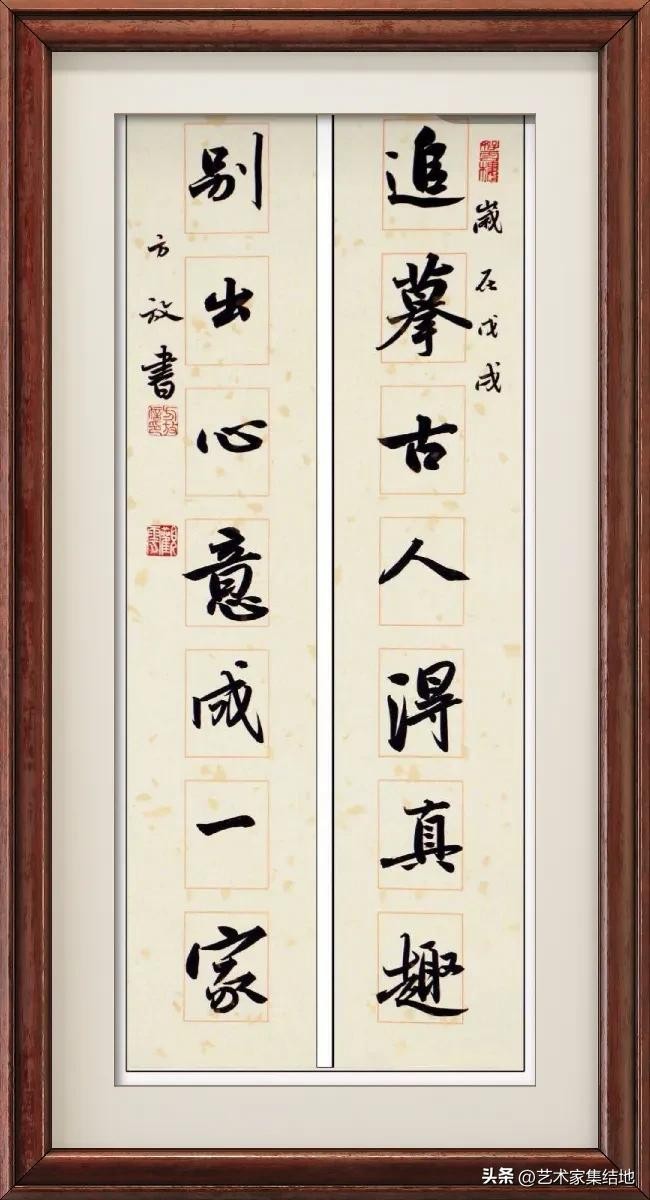 追摹古人得真趣
歲在戊戌
别出心意成一家
方放書
头条 @艺术家集结地